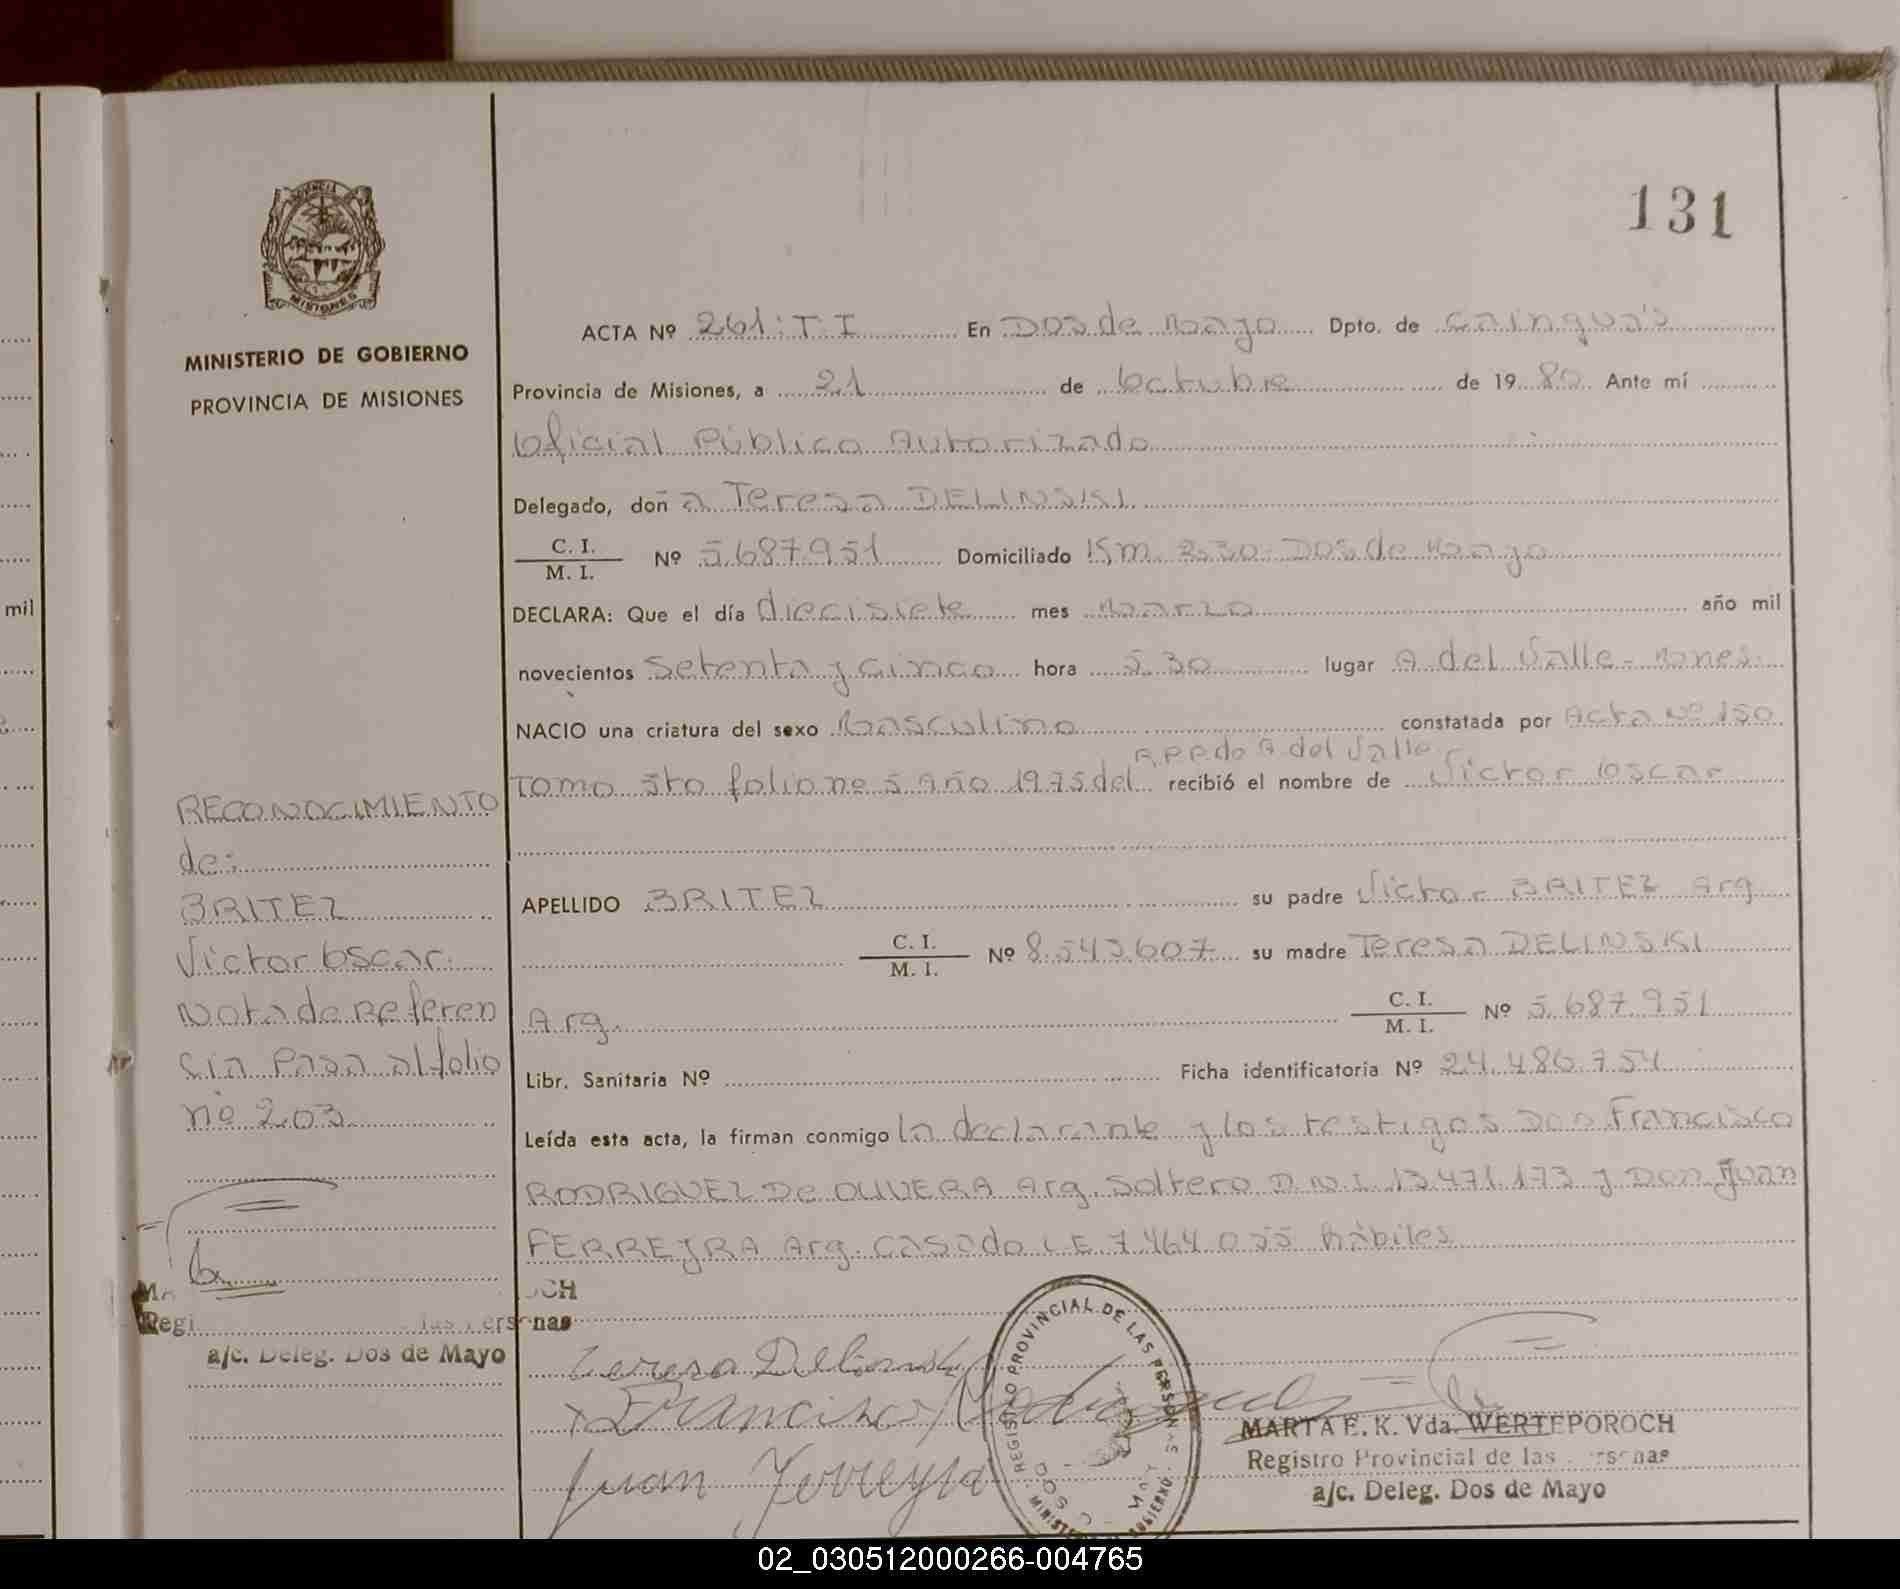 131
MINISTERIO DE GOBIERNO
PROVINCIA DE MISIONES
ACTA Nº 261: T. I En Dos de Mayo Dpto. de Cainguás
Provincia de Misiones, a 21 de Octubre de 19 80 Ante mí
Oficial Público Autorizado
Delegado, doñ a Teresa DELINSKI
C. I. / M. I. Nº 5.687.951 Domiciliado Km. 230. Dos de Mayo
mil
DECLARA: Que el día diecisiete mes Marzo año mil
novecientos Setenta y Cinco hora 5.30 lugar A del Valle - Mones.
NACIO una criatura del sexo Masculino constatada por Acta Nº 150
R.P.P. de A del Valle
Tomo 5to folio nº 5 Año 1975 del recibió el nombre de Victor Oscar
APELLIDO BRITEZ su padre Victor BRITEZ Arg
C. I. / M. I. Nº 8.543.607 su madre Teresa DELINSKI
Arg. C. I. / M. I. Nº 5.687.951
Libr. Sanitaria Nº Ficha identificatoria Nº 24.486.754
Leída esta acta, la firman conmigo la declarante y los testigos Don Francisco
RODRIGUEZ De OLIVERA Arg. Soltero D.N.I. 13.471.173 y Don Juan
FERREYRA Arg. Casado L E 7.464.055 hábiles
RECONOCIMIENTO
de:
BRITEZ
Victor Oscar.
Nota de Referen
cia Pasa al folio
nº 203
a/c. Deleg. Dos de Mayo
Teresa Delinski
Francisco Rodrigues
Juan Ferreyra
REGISTRO PROVINCIAL DE LAS PERSONAS
MARTA E. K. Vda. WERTEPOROCH
Registro Provincial de las Personas
a/c. Deleg. Dos de Mayo
02_030512000266-004765